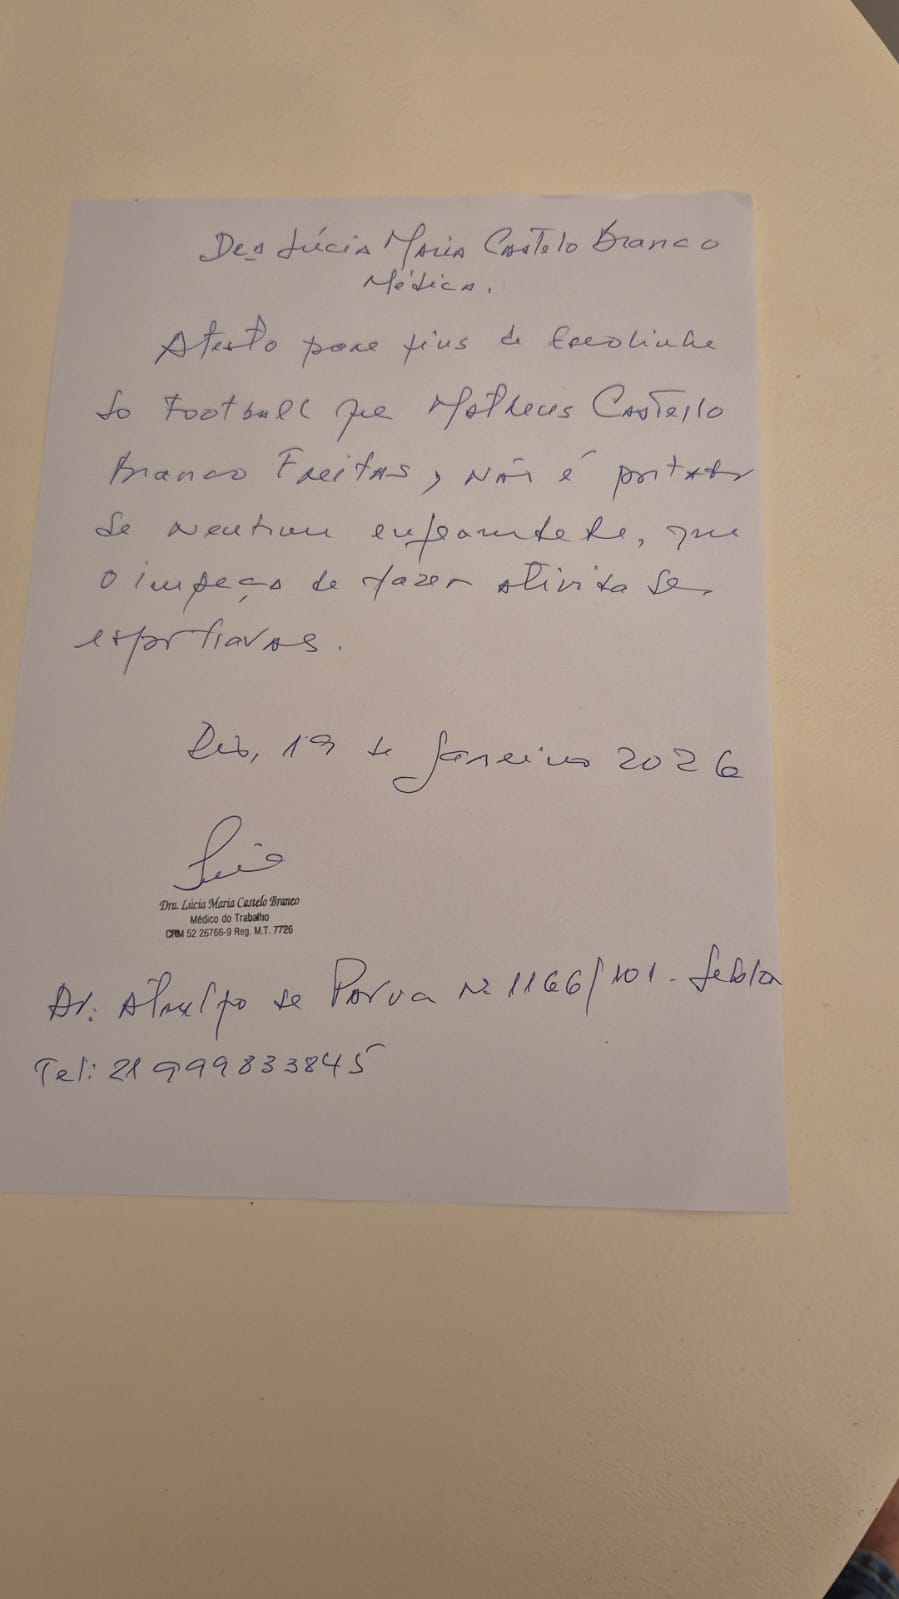 Dra Lúcia Maria Castelo Branco
Médica.
Atesto para fins de Escolinha
do Football que Matheus Castello
Branco Freitas, não é portador
de nenhum enfermidade, que
o impeça de fazer atividades
esportivas.
Rio, 19 de Janeiro 2026
Dra. Lúcia Maria Castelo Branco
Médico do Trabalho
CRM 52 26766-9 Reg. M.T. 7726
Av. Ataulfo de Paiva Nº 1166/101. Leblon
Tel: 21 999833845